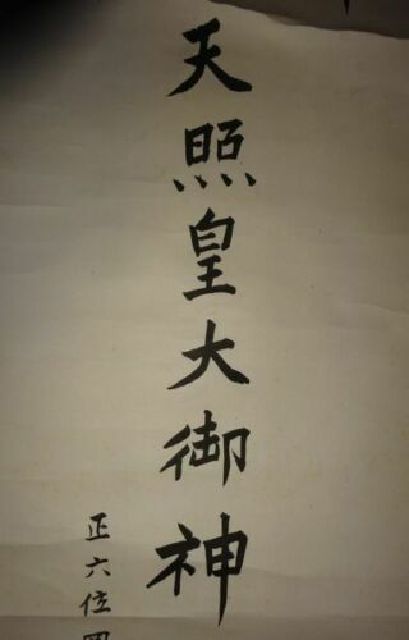 天照皇大御神
正六位